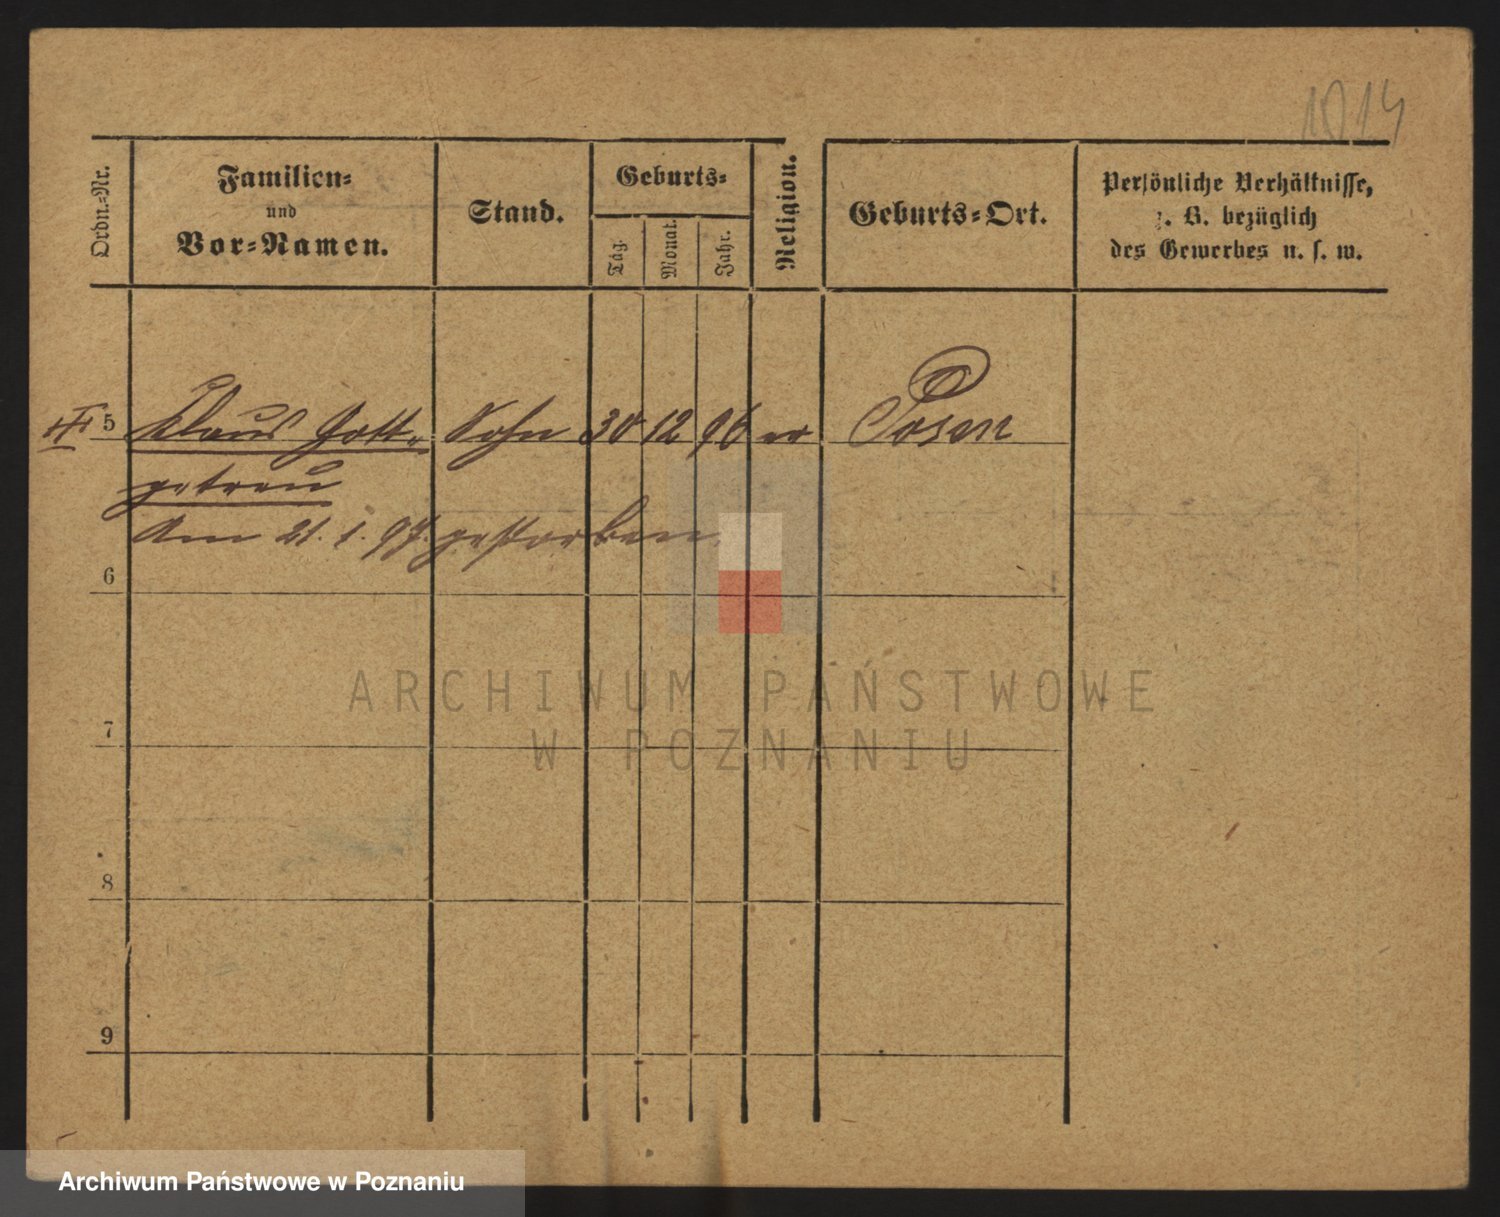 1014
Ordn.-Nr.
Familien-
und
Vor-Namen.
Stand.
Geburts-
Tag.
Monat.
Jahr.
Religion.
Geburts-Ort.
Persönliche Verhältnisse,
z. B. bezüglich
des Gewerbes u. s. w.
5 Klaus Gott- Sohn 30 12 96 ev Posen
getreu
Am 21. 1. 97. gestorben.
6
7
8
9
ARCHIWUM PAŃSTWOWE
W POZNANIU
Archiwum Państwowe w Poznaniu